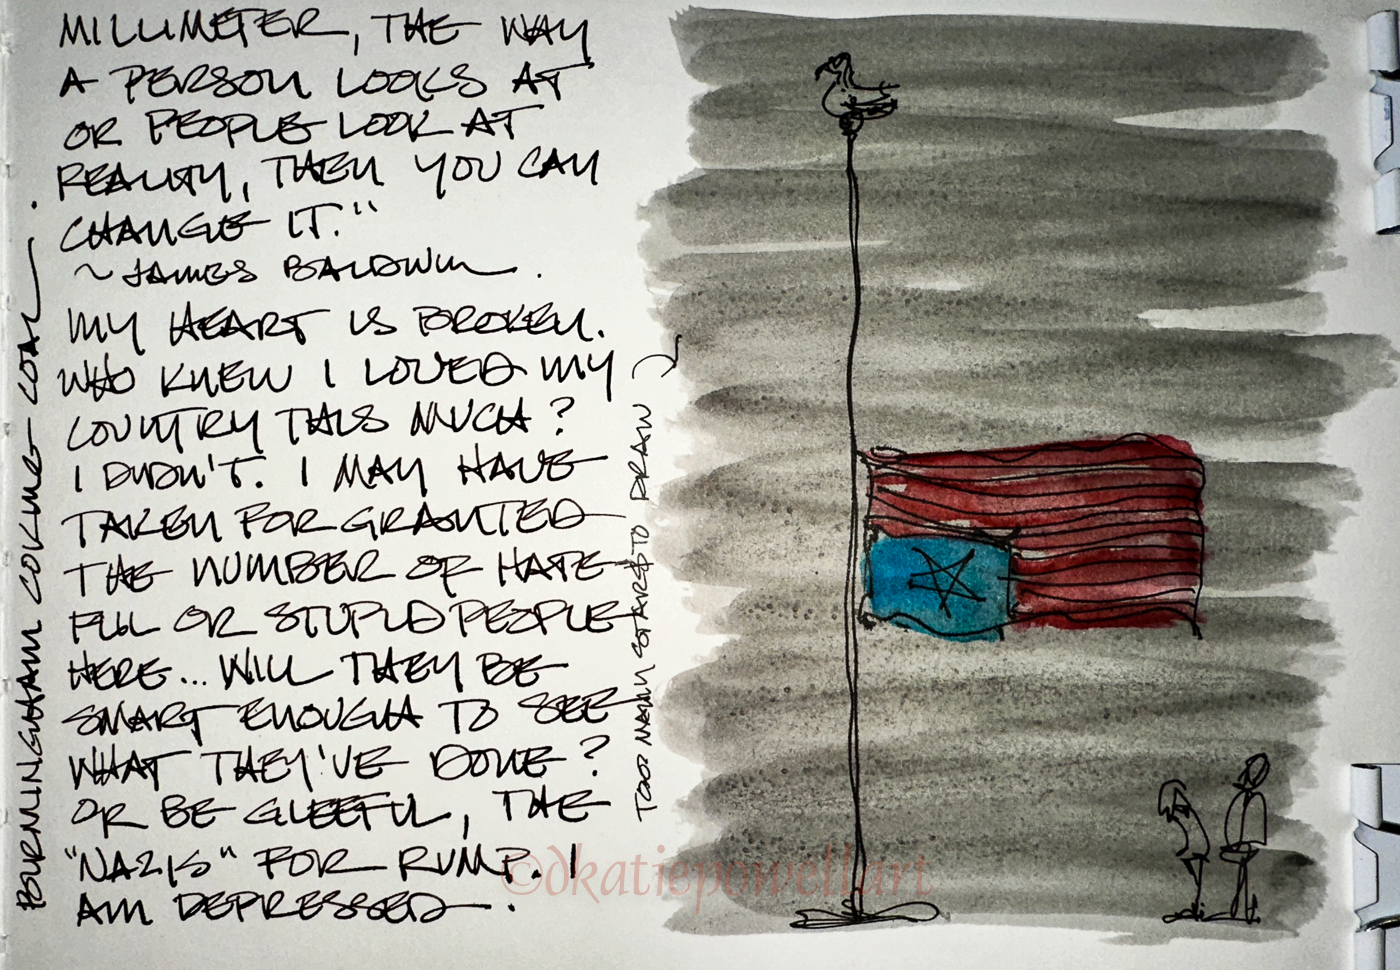 MILLIMETER, THE WAY
A PERSON LOOKS AT
OR PEOPLE LOOK AT
REALITY, THEN YOU CAN
CHANGE IT."
~JAMES BALDWIN.
MY HEART IS BROKEN.
WHO KNEW I LOVED MY
COUNTRY THIS MUCH?
I DIDN'T. I MAY HAVE
TAKEN FOR GRANTED
THE NUMBER OF HATE
FUL OR STUPID PEOPLE
HERE... WILL THEY BE
SMART ENOUGH TO SEE
WHAT THEY'VE DONE?
OR BE GLEEFUL, THE
"NAZIS" FOR RUMP. I
AM DEPRESSED.
BURMINGHAM COKING COAL.
TOO MANY STARS TO DRAW
©dkatiepowellart